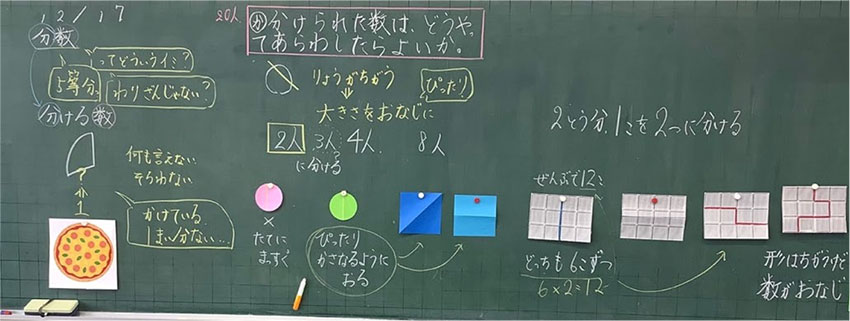 12/17
分数
ってどういうイミ?
5等分。
わりざんじゃない?
分ける数
?
1
何も言えない
そろわない
かけている。
1まい分ない…
20人
か 分けられた数は、どうやってあらわしたらよいか。
りょうがちがう
ぴったり
大きさをおなじに
2人 3人 4人、 8人
に分ける
×
たてに
まっすぐ
ぴったり
かさなるように
おる
2とう分、1こを2つに分ける
ぜんぶで12こ
どっちも6こずつ
6×2=12
形はちがうけど
数がおなじ